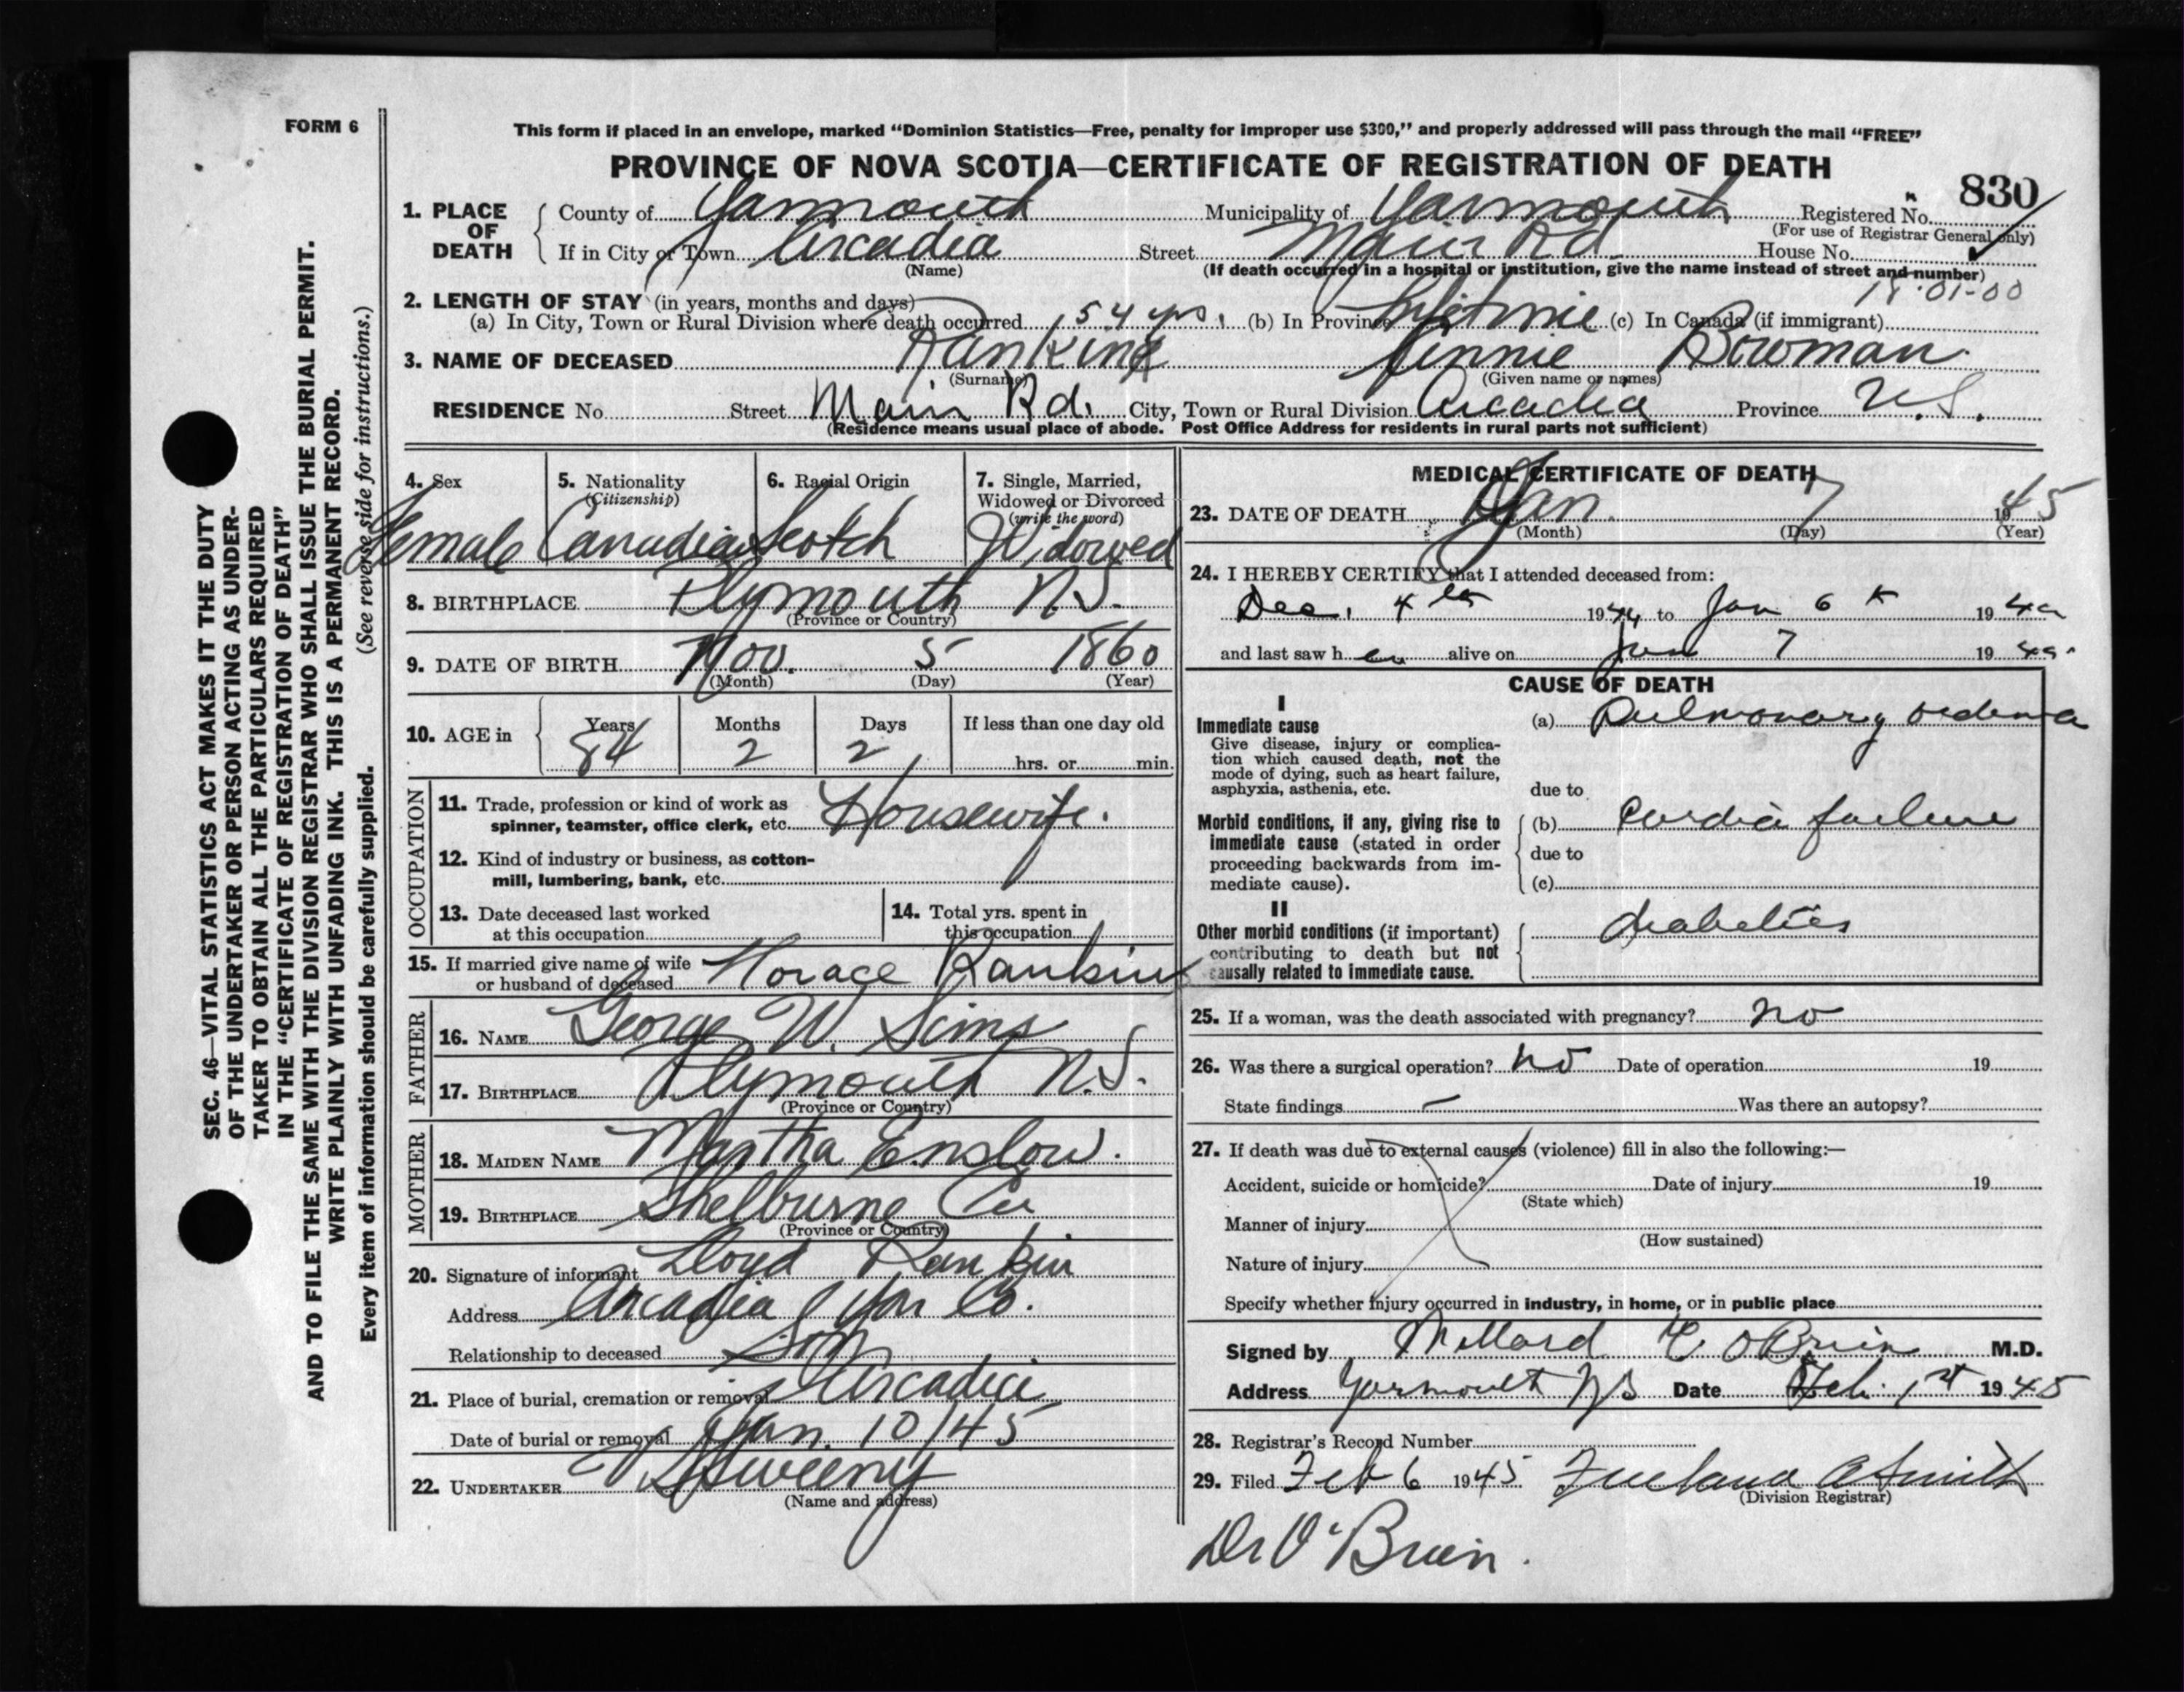 FORM 6
This form if placed in an envelope, marked “Dominion Statistics—Free, penalty for improper use $300,” and properly addressed will pass through the mail “FREE”
PROVINCE OF NOVA SCOTIA—CERTIFICATE OF REGISTRATION OF DEATH
830
1. PLACE OF DEATH County of Yarmouth Municipality of Yarmouth Registered No.
(For use of Registrar General only)
If in City or Town Arcadia Street Main Rd. House No.
(Name) (If death occurred in a hospital or institution, give the name instead of street and number)
18-01-00
2. LENGTH OF STAY (in years, months and days)
(a) In City, Town or Rural Division where death occurred 54 yrs. (b) In Province Lifetime (c) In Canada (if immigrant)
3. NAME OF DECEASED Rankine Annie Bowman
(Surname) (Given name or names)
RESIDENCE No. Street Main Rd. City, Town or Rural Division Arcadia Province N.S.
(Residence means usual place of abode. Post Office Address for residents in rural parts not sufficient)
SEC. 46—VITAL STATISTICS ACT MAKES IT THE DUTY
OF THE UNDERTAKER OR PERSON ACTING AS UNDER-
TAKER TO OBTAIN ALL THE PARTICULARS REQUIRED
IN THE “CERTIFICATE OF REGISTRATION OF DEATH”
AND TO FILE THE SAME WITH THE DIVISION REGISTRAR WHO SHALL ISSUE THE BURIAL PERMIT.
WRITE PLAINLY WITH UNFADING INK. THIS IS A PERMANENT RECORD.
Every item of information should be carefully supplied. (See reverse side for instructions.)
4. Sex 5. Nationality 6. Racial Origin 7. Single, Married,
(Citizenship) Widowed or Divorced
(write the word)
Female Canadian Scotch Widowed
8. BIRTHPLACE Plymouth N.S.
(Province or Country)
9. DATE OF BIRTH Nov. 5 1860
(Month) (Day) (Year)
10. AGE in Years Months Days If less than one day old
84 2 2 hrs. or min.
OCCUPATION
11. Trade, profession or kind of work as
spinner, teamster, office clerk, etc. Housewife.
12. Kind of industry or business, as cotton-
mill, lumbering, bank, etc.
13. Date deceased last worked 14. Total yrs. spent in
at this occupation this occupation
15. If married give name of wife
or husband of deceased Horace Rankine
FATHER
16. NAME George W. Sims
17. BIRTHPLACE Plymouth N.S.
(Province or Country)
MOTHER
18. MAIDEN NAME Martha Enslow.
19. BIRTHPLACE Shelburne Co
(Province or Country)
20. Signature of informant Lloyd Rankin
Address Arcadia Yar Co.
Relationship to deceased Son
21. Place of burial, cremation or removal Arcadia
Date of burial or removal Jan. 10/45
22. UNDERTAKER Sweeny
(Name and address)
MEDICAL CERTIFICATE OF DEATH
23. DATE OF DEATH Jan. 7 1945
(Month) (Day) (Year)
24. I HEREBY CERTIFY that I attended deceased from:
Dec. 4th 1944 to Jan 6th 1945
and last saw her alive on Jan 7 1945
CAUSE OF DEATH
I
Immediate cause (a) Pulmonary oedema
Give disease, injury or complica-
tion which caused death, not the
mode of dying, such as heart failure,
asphyxia, asthenia, etc. due to
Morbid conditions, if any, giving rise to (b) Cardia failure
immediate cause (stated in order due to
proceeding backwards from im-
mediate cause). (c)
II
Other morbid conditions (if important) diabeties
contributing to death but not
causally related to immediate cause.
25. If a woman, was the death associated with pregnancy? no
26. Was there a surgical operation? no Date of operation 19
State findings — Was there an autopsy?
27. If death was due to external causes (violence) fill in also the following:—
Accident, suicide or homicide? Date of injury 19
(State which)
Manner of injury
(How sustained)
Nature of injury
Specify whether injury occurred in industry, in home, or in public place
Signed by Millard O'Brien M.D.
Address Yarmouth NS Date Feb. 1st 1945
28. Registrar’s Record Number
29. Filed Feb 6 1945 A Smith
(Division Registrar)
Dr O'Brien.